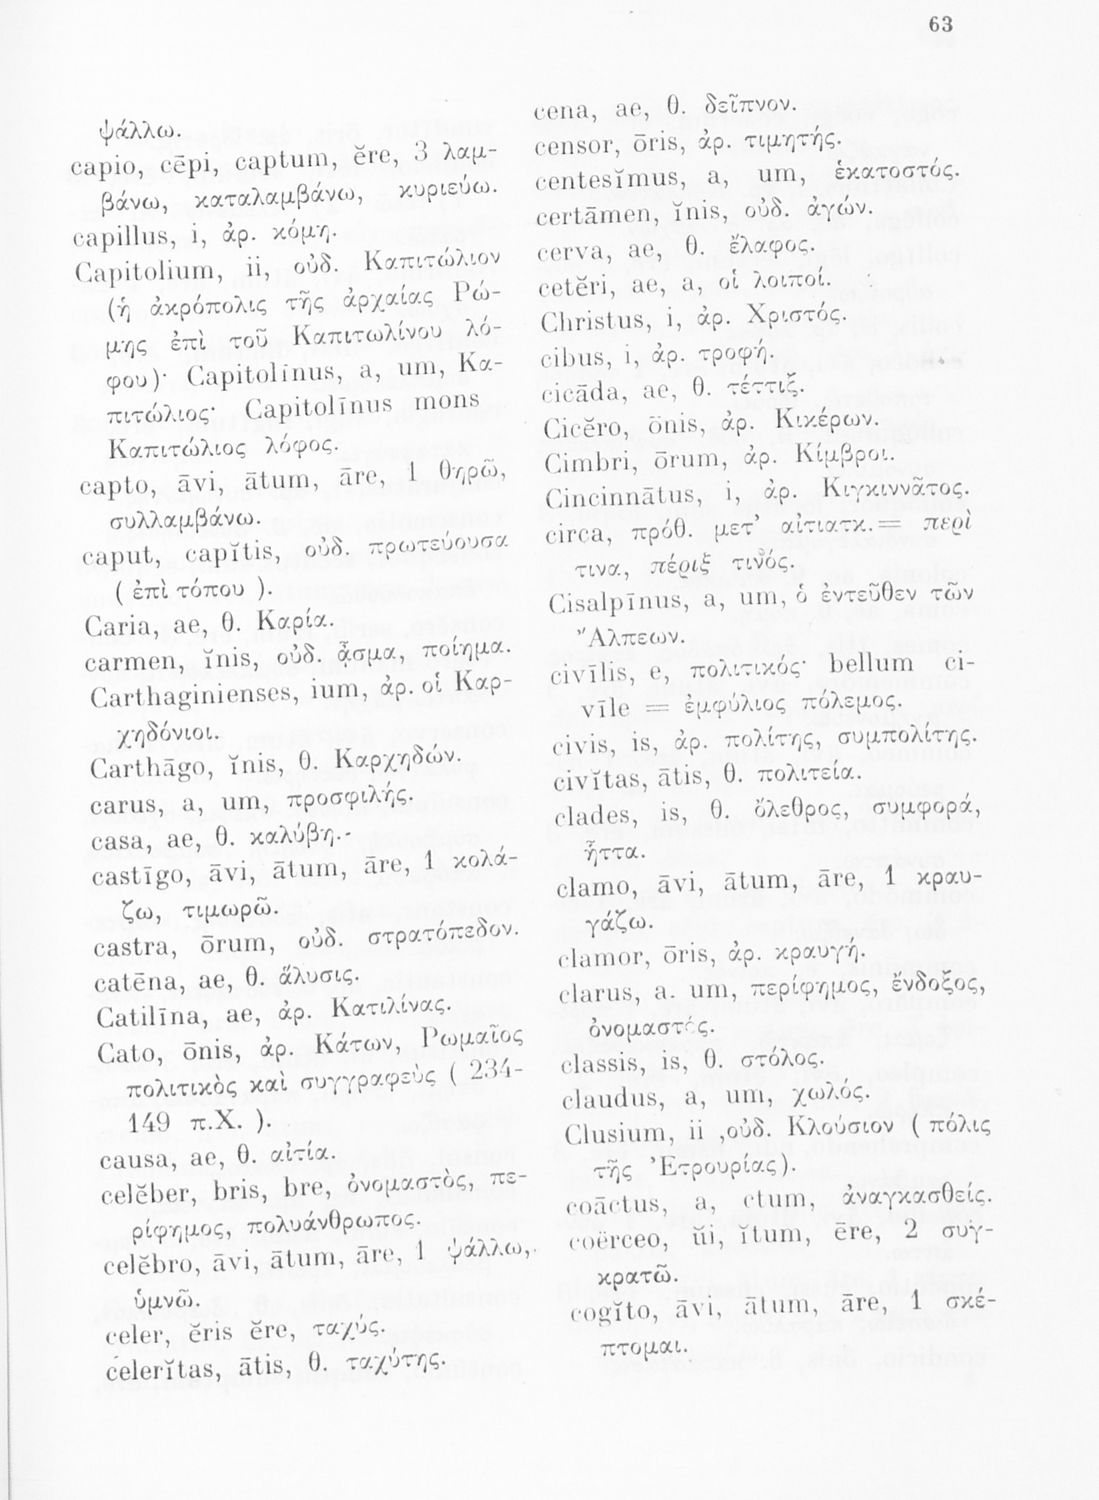 63
ψάλλω.
capio, cēpi, captum, ĕre, 3 λαμ-
βάνω, καταλαμβάνω, κυριεύω.
capillus, i, ἀρ. κόμη.
Capitolium, ii, οὐδ. Καπιτώλιον
(ἡ ἀκρόπολις τῆς ἀρχαίας Ῥώ-
μης ἐπὶ τοῦ Καπιτωλίνου λό-
φου)· Capitolīnus, a, um, Κα-
πιτώλιος· Capitolīnus mons
Καπιτώλιος λόφος.
capto, āvi, ātum, āre, 1 θηρῶ,
συλλαμβάνω.
caput, capĭtis, οὐδ. πρωτεύουσα
( ἐπὶ τόπου ).
Caria, ae, θ. Καρία.
carmen, ĭnis, οὐδ. ᾆσμα, ποίημα.
Carthaginienses, ium, ἀρ. οἱ Καρ-
χηδόνιοι.
Carthāgo, ĭnis, θ. Καρχηδών.
carus, a, um, προσφιλής.
casa, ae, θ. καλύβη.-
castīgo, āvi, ātum, āre, 1 κολά-
ζω, τιμωρῶ.
castra, ōrum, οὐδ. στρατόπεδον.
catēna, ae, θ. ἅλυσις.
Catilīna, ae, ἀρ. Κατιλίνας.
Cato, ōnis, ἀρ. Κάτων, Ῥωμαῖος
πολιτικὸς καὶ συγγραφεὺς ( 234-
149 π.Χ. ).
causa, ae, θ. αἰτία.
celĕber, bris, bre, ὀνομαστὸς, πε-
ρίφημος, πολυάνθρωπος.
celĕbro, āvi, ātum, āre, 1 ψάλλω,
ὑμνῶ.
celer, ĕris ĕre, ταχύς.
celerĭtas, ātis, θ. ταχύτης.
cena, ae, θ. δεῖπνον.
censor, ōris, ἀρ. τιμητής.
centesĭmus, a, um, ἑκατοστός.
certāmen, ĭnis, οὐδ. ἀγών.
cerva, ae, θ. ἔλαφος.
cetĕri, ae, a, οἱ λοιποί.
Christus, i, ἀρ. Χριστός.
cibus, i, ἀρ. τροφή.
cicāda, ae, θ. τέττιξ.
Cicĕro, ōnis, ἀρ. Κικέρων.
Cimbri, ōrum, ἀρ. Κίμβροι.
Cincinnātus, i, ἀρ. Κιγκιννᾶτος.
circa, πρόθ. μετ’ αἰτιατκ.= περὶ
τινα, πέριξ τινός.
Cisalpīnus, a, um, ὁ ἐντεῦθεν τῶν
Ἄλπεων.
civīlis, e, πολιτικός· bellum ci-
vīle = ἐμφύλιος πόλεμος.
civis, is, ἀρ. πολίτης, συμπολίτης.
civĭtas, ātis, θ. πολιτεία.
clades, is, θ. ὄλεθρος, συμφορά,
ἧττα.
clamo, āvi, ātum, āre, 1 κραυ-
γάζω.
clamor, ōris, ἀρ. κραυγή.
clarus, a. um, περίφημος, ἔνδοξος,
ὀνομαστός.
classis, is, θ. στόλος.
claudus, a, um, χωλός.
Clusium, ii ,οὐδ. Κλούσιον ( πόλις
τῆς Ἐτρουρίας).
coāctus, a, ctum, ἀναγκασθείς.
coërceo, ŭi, ĭtum, ēre, 2 συγ-
κρατῶ.
cogĭto, āvi, ātum, āre, 1 σκέ-
πτομαι.